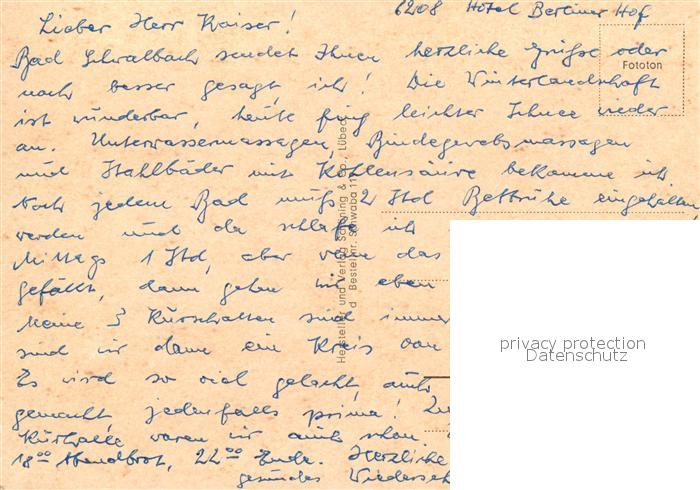 6208 Hotel Berliner Hof
Lieber Herr Kaiser!
Bad Schwalbach sendet Ihnen herzliche Grüße oder
noch besser gesagt ich! Die Winterlandschaft
ist wunderbar, heute fing leichter Schnee wieder
an. Unterwassermassagen, Bindegewebsmassagen
und Stahlbäder mit Kohlensäure bekomme ich
Nach jedem Bad muß 2 Std Bettruhe eingehalten
werden und da schlafe ich
Mittags 1 Std, aber das
gefällt, dann gehen wir eben
Meine 3 Kurschatten sind immer
sind wir dann ein Kreis von
Es wird so viel gelacht, auch
gemacht jedenfalls prima!
Kurhalle waren wir auch schon.
18⁰⁰ Abendbrot, 22⁰⁰ Ende. Herzliche
gesundes Wiederseh
Fototon
Hersteller und Verlag Schöning & Co., Lübeck
Bestellnr. Schwaba
privacy protection
Datenschutz